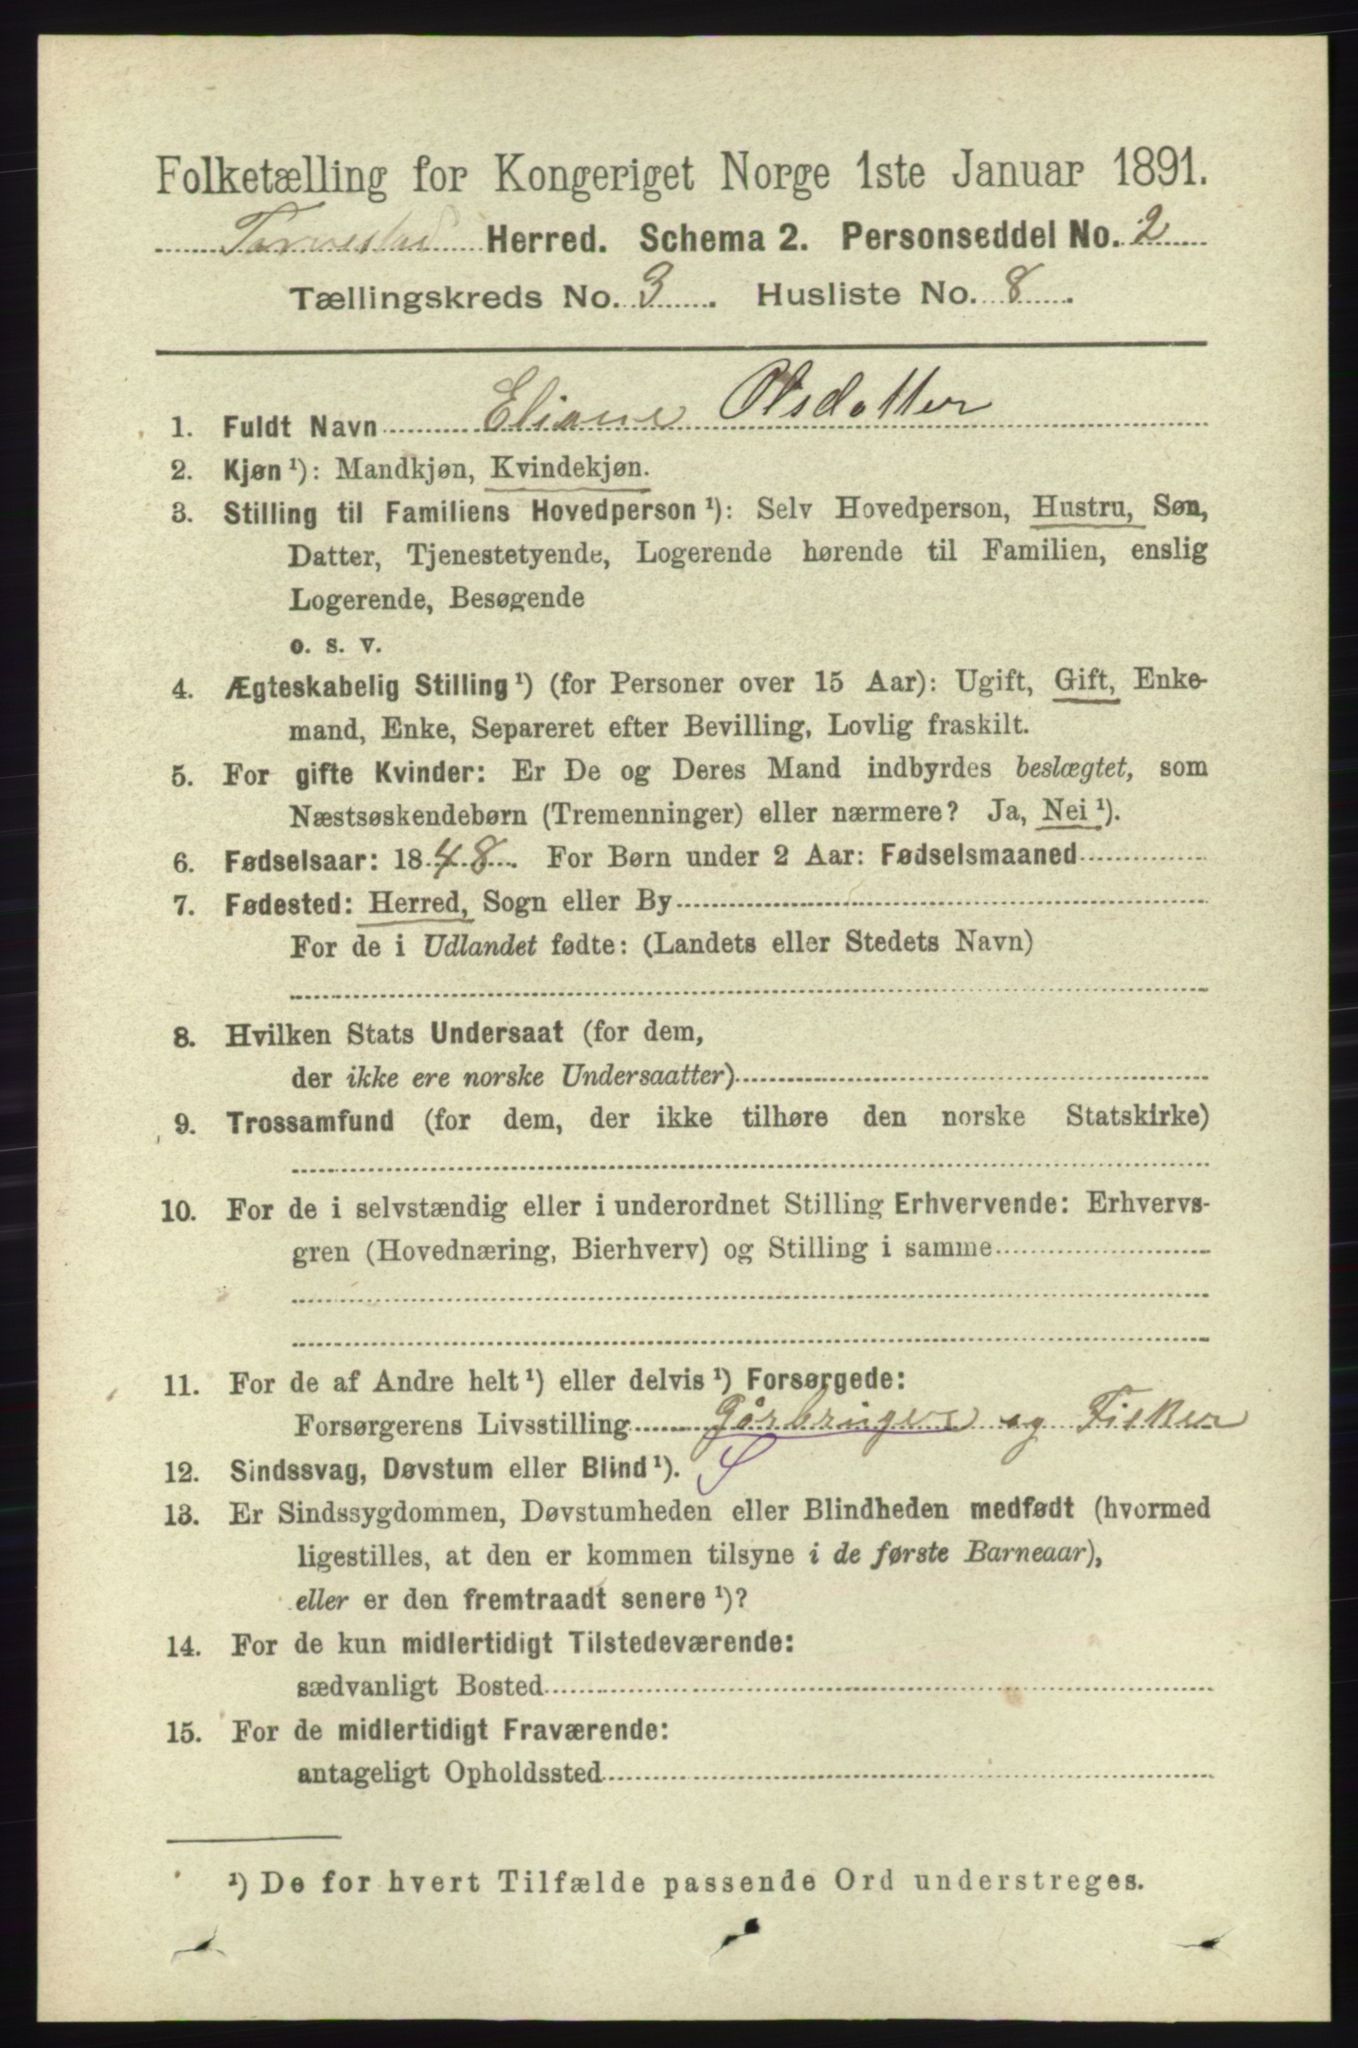 Folketælling for Kongeriget Norge 1ste Januar 1891.
Torvestad Herred. Schema 2. Personseddel No. 2
Tællingskreds No. 3. Husliste No. 8.
1. Fuldt Navn Eliane Olsdatter
2. Kjøn ¹): Mandkjøn, Kvindekjøn.
3. Stilling til Familiens Hovedperson ¹): Selv Hovedperson, Hustru, Søn,
Datter, Tjenestetyende, Logerende hørende til Familien, enslig
Logerende, Besøgende
o. s. v.
4. Ægteskabelig Stilling ¹) (for Personer over 15 Aar): Ugift, Gift, Enke-
mand, Enke, Separeret efter Bevilling, Lovlig fraskilt.
5. For gifte Kvinder: Er De og Deres Mand indbyrdes beslægtet, som
Næstsøskendebørn (Tremenninger) eller nærmere? Ja, Nei ¹).
6. Fødselsaar: 1848. For Børn under 2 Aar: Fødselsmaaned
7. Fødested: Herred, Sogn eller By
For de i Udlandet fødte: (Landets eller Stedets Navn)
8. Hvilken Stats Undersaat (for dem,
der ikke ere norske Undersaatter)
9. Trossamfund (for dem, der ikke tilhøre den norske Statskirke)
10. For de i selvstændig eller i underordnet Stilling Erhvervende: Erhvervs-
gren (Hovednæring, Bierhverv) og Stilling i samme
11. For de af Andre helt ¹) eller delvis ¹) Forsørgede:
Forsørgerens Livsstilling Gårbruger og Fisker
12. Sindssvag, Døvstum eller Blind ¹). S
13. Er Sindssygdommen, Døvstumheden eller Blindheden medfødt (hvormed
ligestilles, at den er kommen tilsyne i de første Barneaar),
eller er den fremtraadt senere ¹)?
14. For de kun midlertidigt Tilstedeværende:
sædvanligt Bosted
15. For de midlertidigt Fraværende:
antageligt Opholdssted
¹) De for hvert Tilfælde passende Ord understreges.